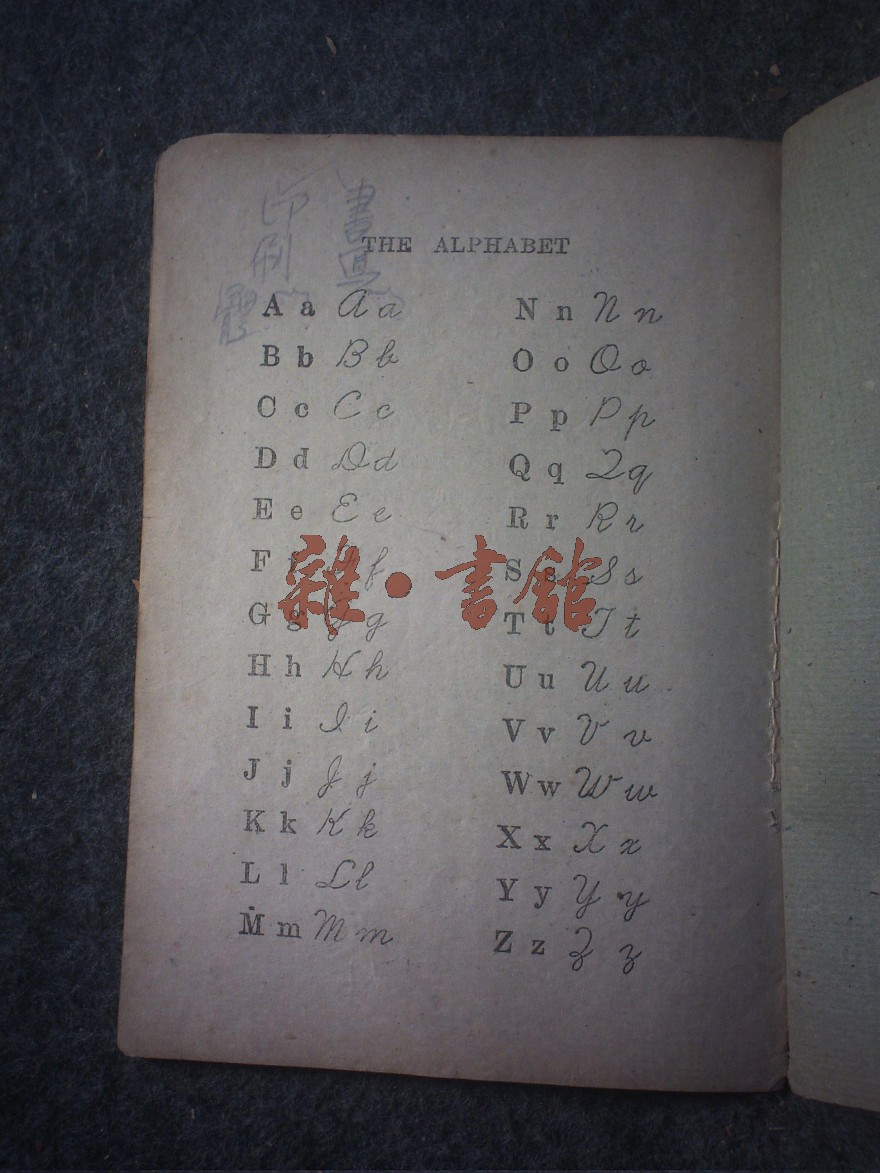 印刷
書
THE ALPHABET
A a A a
B b B b
C c C c
D d D d
E e E e
F f F f
G g G g
H h H h
I i I i
J j J j
K k K k
L l L l
M m M m
N n N n
O o O o
P p P p
Q q Q q
R r R r
S s S s
T t T t
U u U u
V v V v
W w W w
X x X x
Y y Y y
Z z Z z
雜·書館